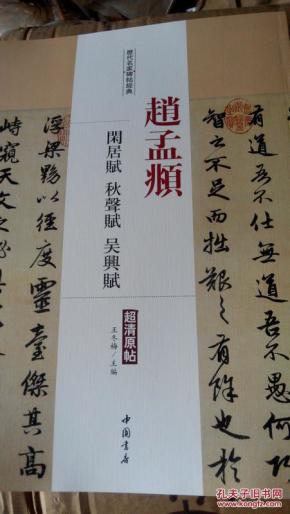 有道吾不仕無道吾不愚何巧
智之不足而拙艱之有餘也於
歷代名家碑帖經典
趙孟頫
閑居賦 秋聲賦 吴興賦
超清原帖
王冬梅／主編
中国書店
浮梁黝以徑度靈臺傑其高
峙窺天文之
孔夫子旧书网